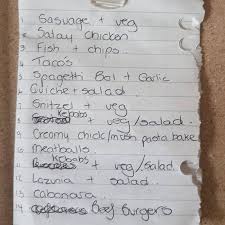 1 Sasuage + veg
2 Satay Chicken
3 Fish + chips.
4 Taco's
5 Spagetti Bol + Garlic
6 Quiche + salad
7 Snitzel + veg
8 Kebabs + veg/salad.
9 Creamy chick/mush pasta bake
10 Meatballs
11 Kebabs + veg/salad.
12 Lazunia + salad
13 Cabonara
14 Beef Burgers